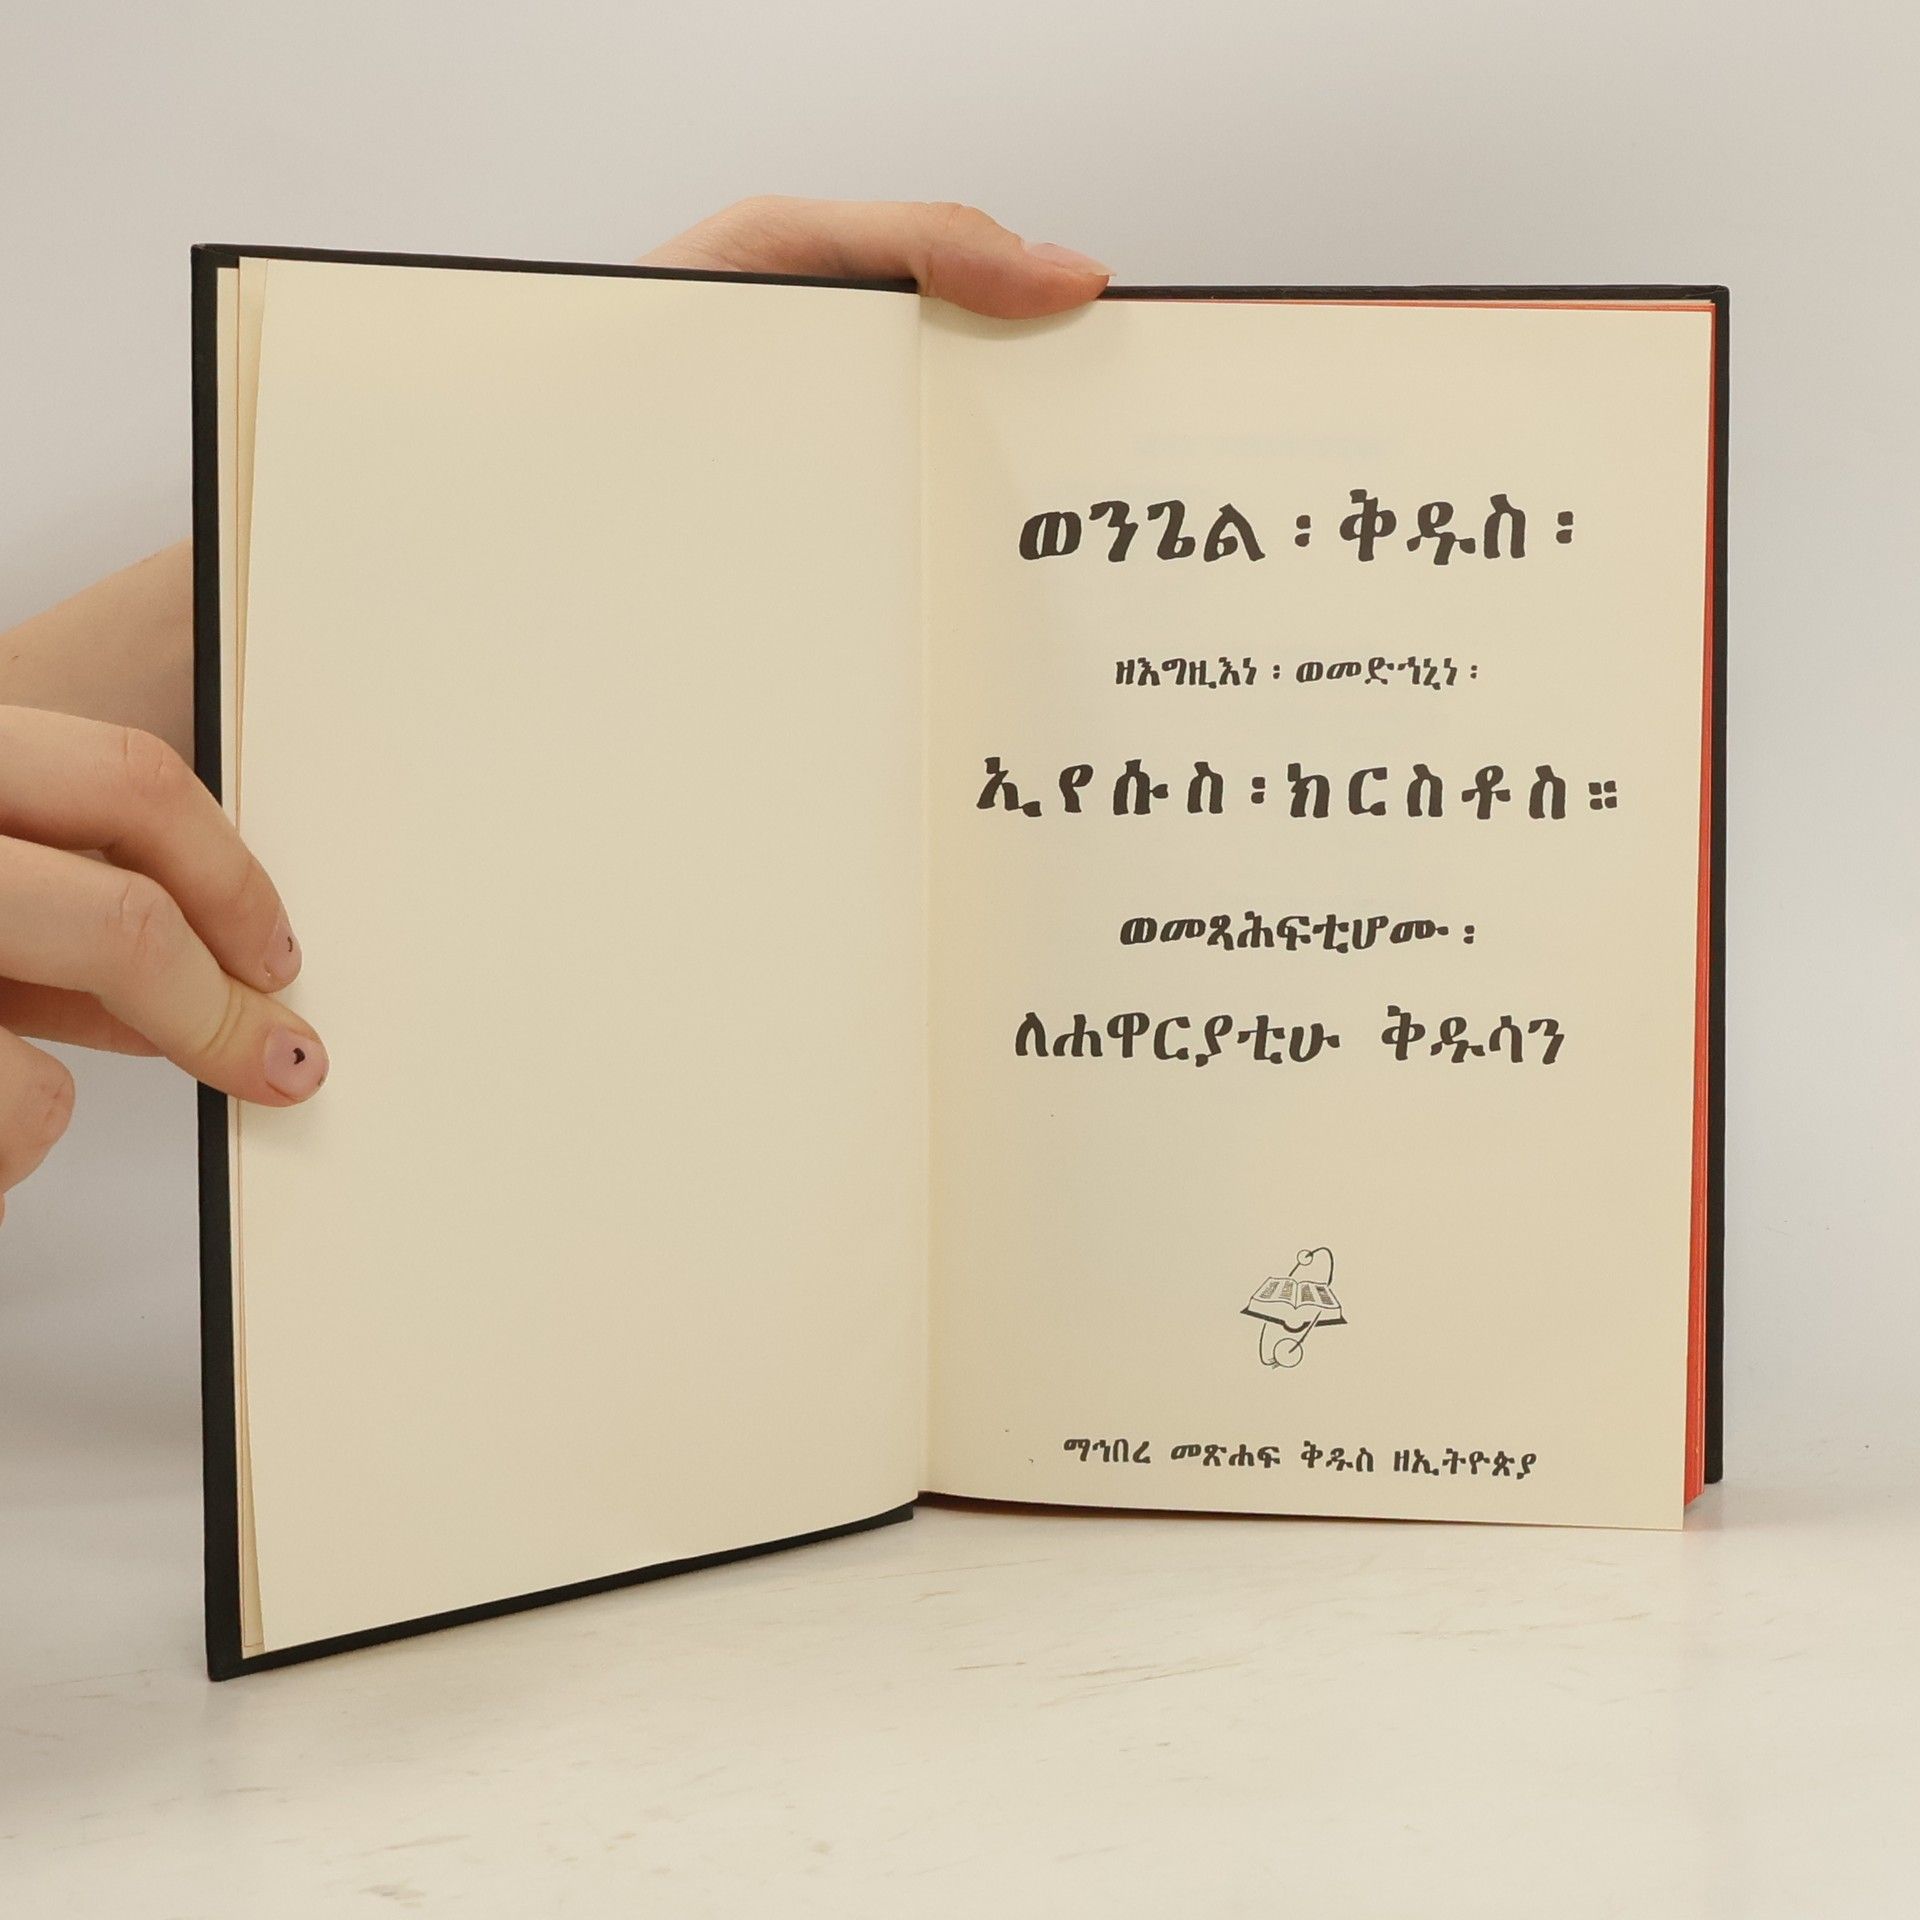 ወንጌል ፡ ቅዱስ ፡
ዘእግዚእነ ፡ ወመድኀኒነ ፡
ኢየሱስ ፡ ክርስቶስ ።
ወመጻሕፍቲሆሙ ፡
ለሐዋርያቲሁ ቅዱሳን
ማኅበረ መጽሐፍ ቅዱስ ዘኢትዮጵያ